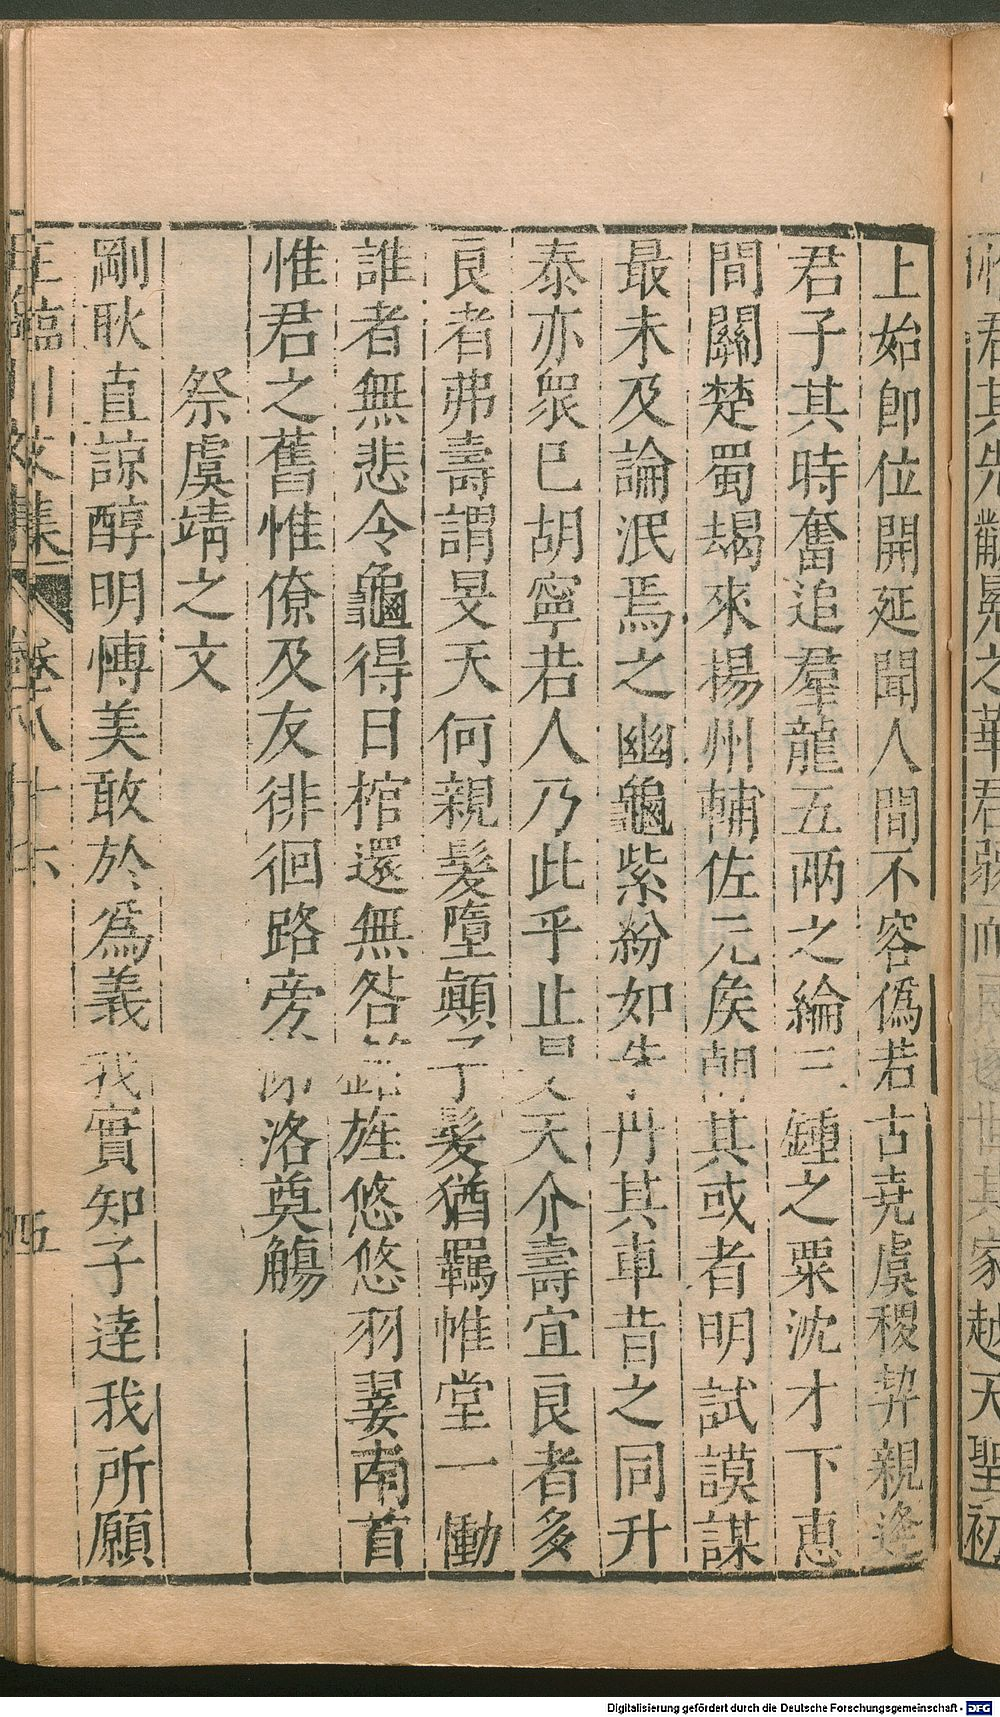 惟君其先黻冕之華君弱而
其家越天聖初
上始即位開延聞人間不容偽若古堯虞稷契親逢
君子其時奮追羣龍五兩之綸三鍾之粟沈才下惠
間關楚蜀朅來揚州輔佐元侯胡其或者明試謨謀
最未及論泯焉之幽龜紫紛如朱丹其車昔之同升
泰亦衆巳胡寧若人乃此乎止曰天介壽宜良者多
良者弗壽謂旻天何親髮墮顛子髮猶羈惟堂一慟
誰者無悲令龜得日棺還無咎銘旌悠悠羽翣南首
惟君之舊惟僚及友徘徊路旁涕洛奠觴
祭虞靖之文
剛耿直諒醇明愽美敢於爲義我實知子達我所願
王臨川文集
卷八十六
五
Digitalisierung gefördert durch die Deutsche Forschungsgemeinschaft - DFG